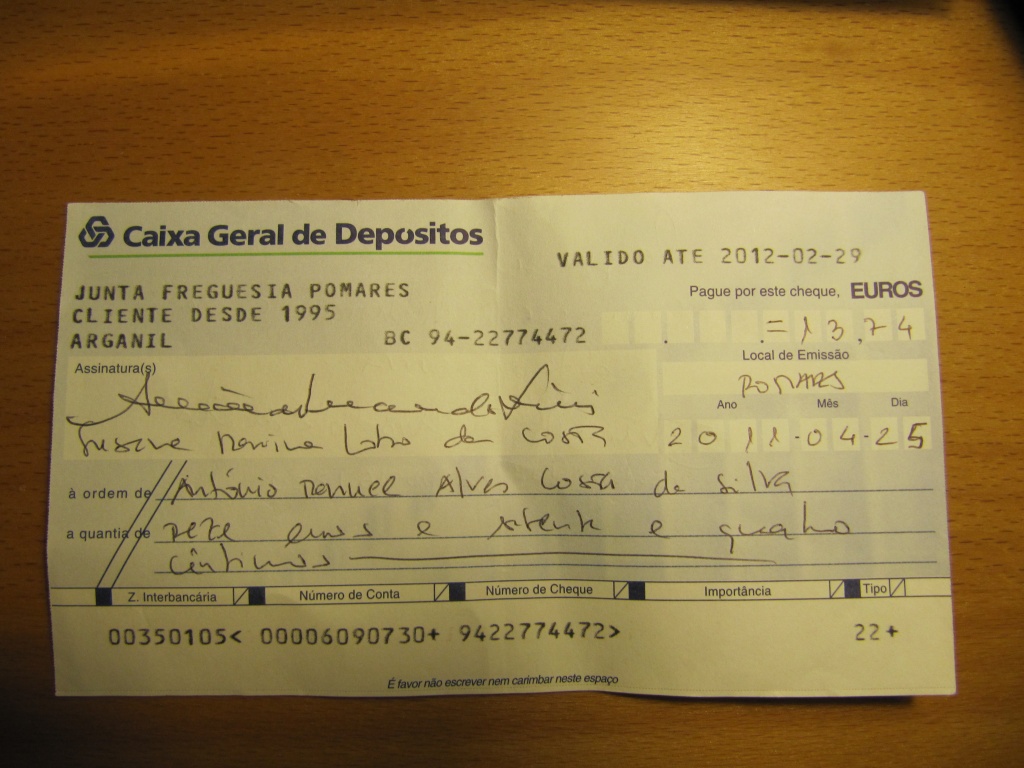 Caixa Geral de Depósitos
VALIDO ATE 2012-02-29
JUNTA FREGUESIA POMARES
CLIENTE DESDE 1995
ARGANIL BC 94-22774472
Pague por este cheque, EUROS
=13,74
Local de Emissão
POMARES
Assinatura(s)
Ano Mês Dia
da Costa 2011-04-25
à ordem de António Manuel Alves Costa da Silva
a quantia de treze euros e setenta e quatro
cêntimos
Z. Interbancária Número de Conta Número de Cheque Importância Tipo
00350105< 00006090730+ 9422774472> 22+
É favor não escrever nem carimbar neste espaço